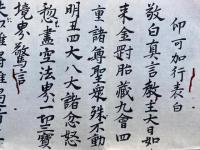 印可加行表白
敬白真言教主大日如
来金剛胎藏九會四
重諸尊聖衆殊不動
明王四大八大諸忿怒
惣盡空法界一切三寶
境界驚言